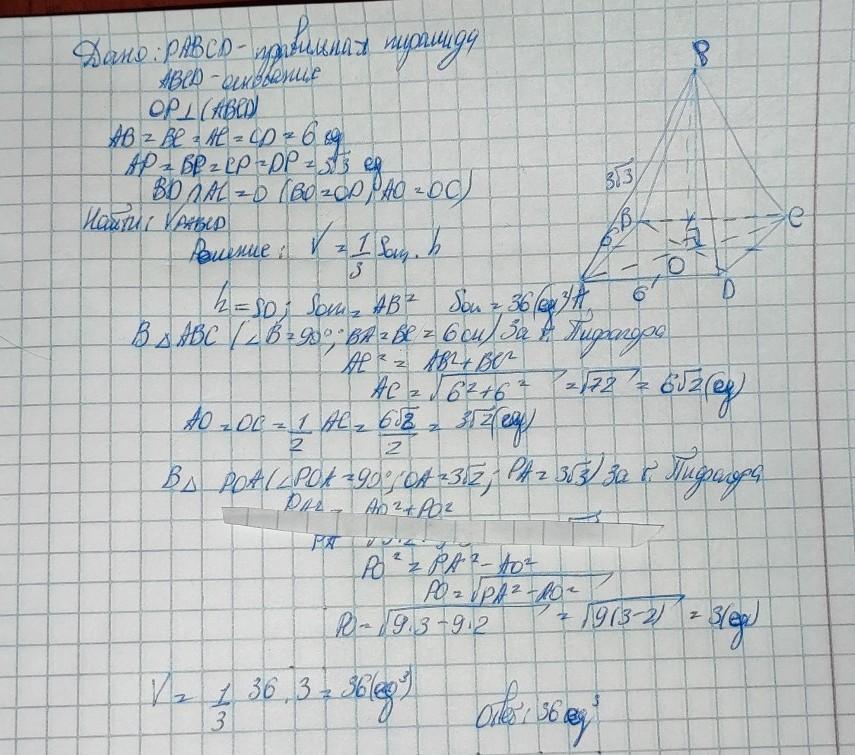 Дано: PABCD - правильная пирамида
ABCD - основание
OP⊥(ABCD)
AB = BC = AC = CD = 6 ед
AP = BP = CP = DP = 3√3 ед
BD∩AC = O (BO=OD; AO=OC)
Найти: V
Решение: V = 1/3 Sосн. h
h = SO; Sосн = AB² Sосн = 36(ед²)
В △ABC (∠B=90°; BA=BC=6см) За т. Пифагора
AC² = AB²+BC²
AC = √6²+6² = √72 = 6√2(ед)
AO = OC = 1/2 AC = 6√2/2 = 3√2(ед)
В △ POA (∠POA=90°; OA=3√2; PA=3√3) За т. Пифагора
PA² = AO²+PO²
PA
PO² = PA²-AO²
PO=√PA²-AO²
PO=√9·3-9·2 = √9(3-2) = 3(ед)
V = 1/3 36 . 3 = 36(ед³)
Ответ: 36 ед³
P
3√3
B
C
6
O
A
6
D